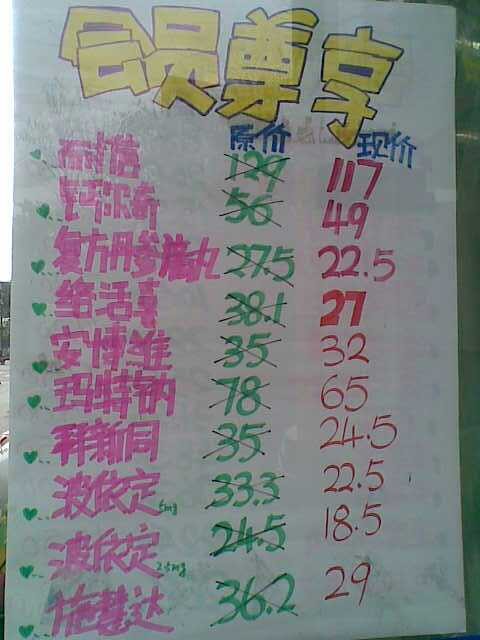 会员尊享
原价 现价
129 117
钙尔奇 56 49
复方丹参滴丸 27.5 22.5
络活喜 38.1 27
安博维 35 32
玛特纳 78 65
科新同 35 24.5
波依定 5mg 33.3 22.5
波依定 2.5mg 24.5 18.5
施慧达 36.2 29